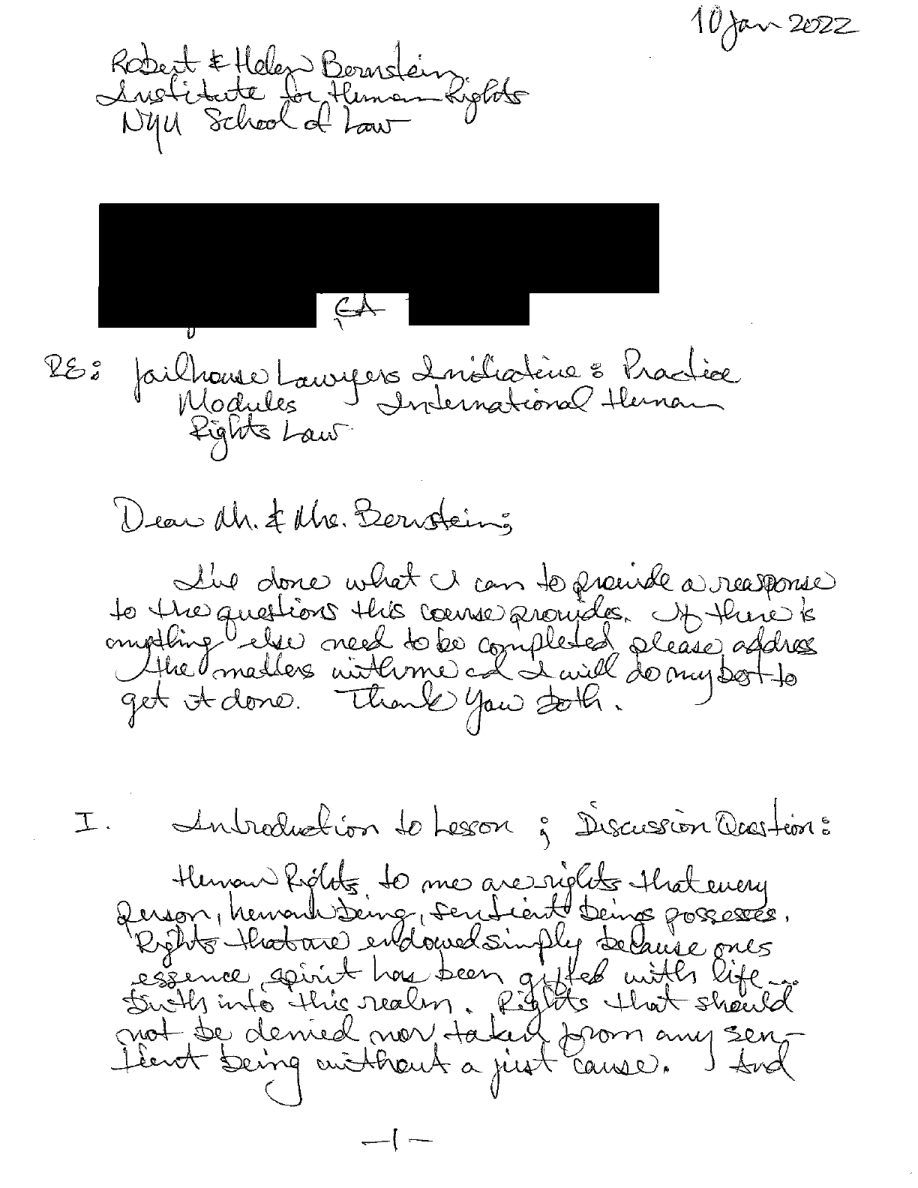 10 Jan 2022
Robert & Helen Bernstein
Institute for Human Rights
NYU School of Law
CA
RE: Jailhouse Lawyers Initiative: Practice
Modules International Human
Rights Law
Dear Mr. & Mrs. Bernstein;
I've done what I can to provide a reasponse
to the questions this course provides. If there is
anything else need to be completed please address
the matters with me and I will do my best to
get it done. Thank You Both.
I. Introduction to Lesson ; Discussion Question:
Human Rights to me are rights that every
person, human being, sentient beings possesses.
Rights that are endowed simply because ones
essence, spirit has been gifted with life...
birth into this realm. Rights that should
not be denied nor taken from any sen-
tient being without a just cause. And
-1-